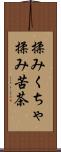 揉みくちゃ
揉み苦茶